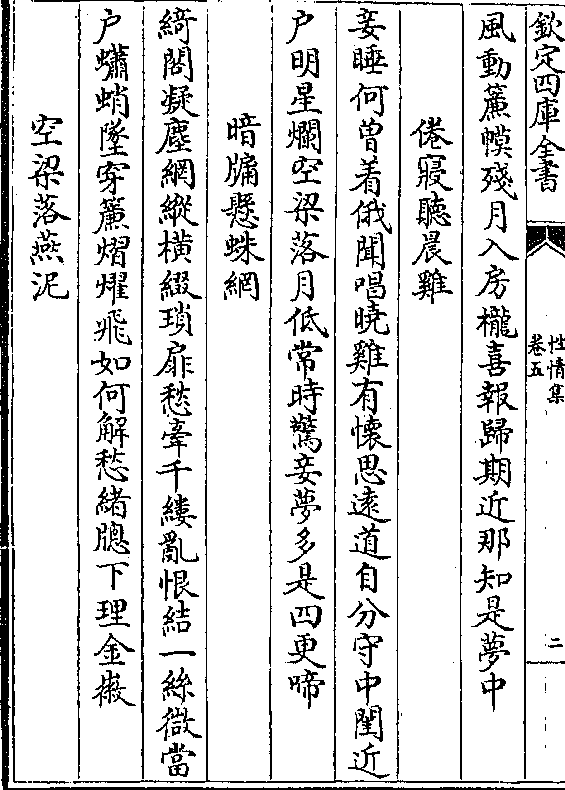 欽定四庫全書
性情集
卷五
二
風動簾幙殘月入房櫳喜報歸期近那知是夢中
倦寢聽晨雞
妾睡何曽着俄聞唱曉雞有懷思遠道自分守中閨近
户明星爛空梁落月低常時驚妾夢多是四更啼
暗牖懸蛛網
綺閣凝塵網縱橫綴瑣扉愁牽千縷亂恨結一絲微當
户蠨蛸墜穿簾熠燿飛如何解愁緒牕下理金徽
空梁落燕泥